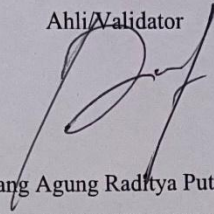 Ahli/Validator
ang Agung Raditya Put